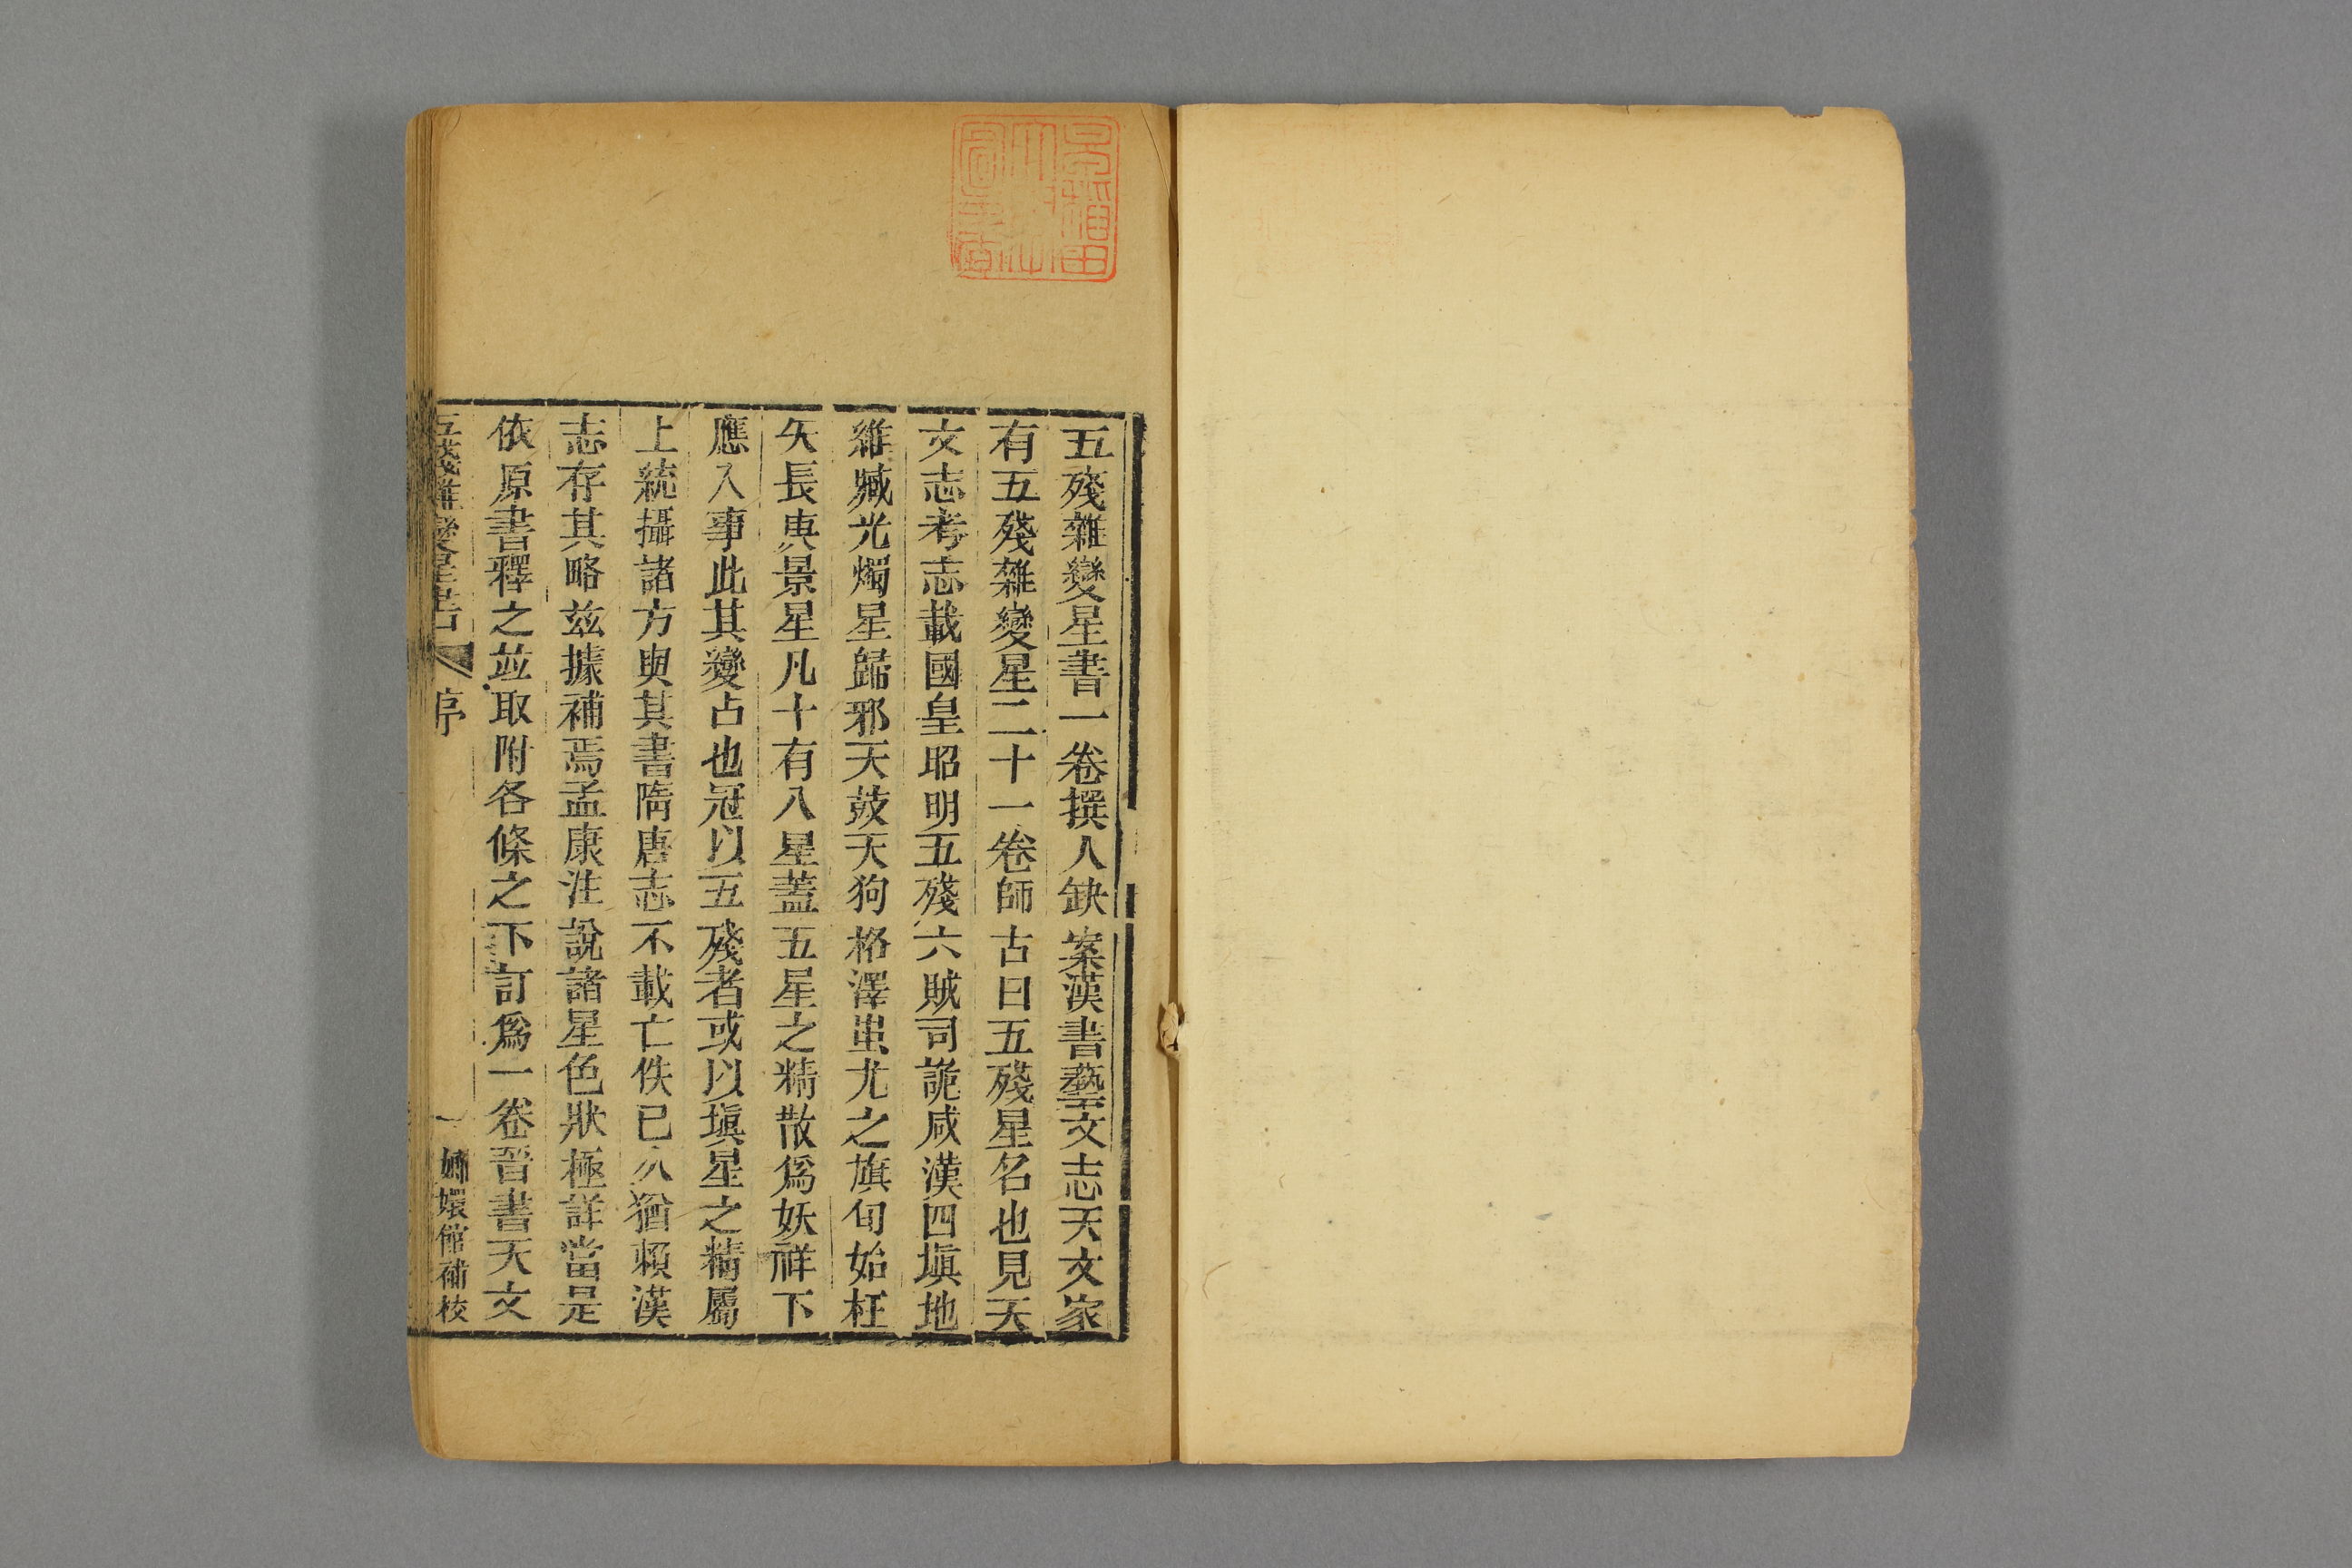 五殘雜變星書一卷撰人缺案漢書藝文志天文家
有五殘雜變星二十一卷師古曰五殘星名也見天
文志考志載國皇昭明五殘六賊司詭咸漢四塡地
維臧光燭星歸邪天鼓天狗格澤蚩尤之旗旬始枉
矢長庚景星凡十有八星蓋五星之精散爲妖祥下
應人事此其變占也冠以五殘者或以塡星之精屬
上統攝諸方與其書隋唐志不載亡佚已久猶賴漢
志存其略兹據補焉孟康注說諸星色狀極詳當是
依原書釋之竝取附各條之下訂爲一卷晉書天文
五殘雜變星書 序 一 嫏嬛館補校
早稲田大學圖書